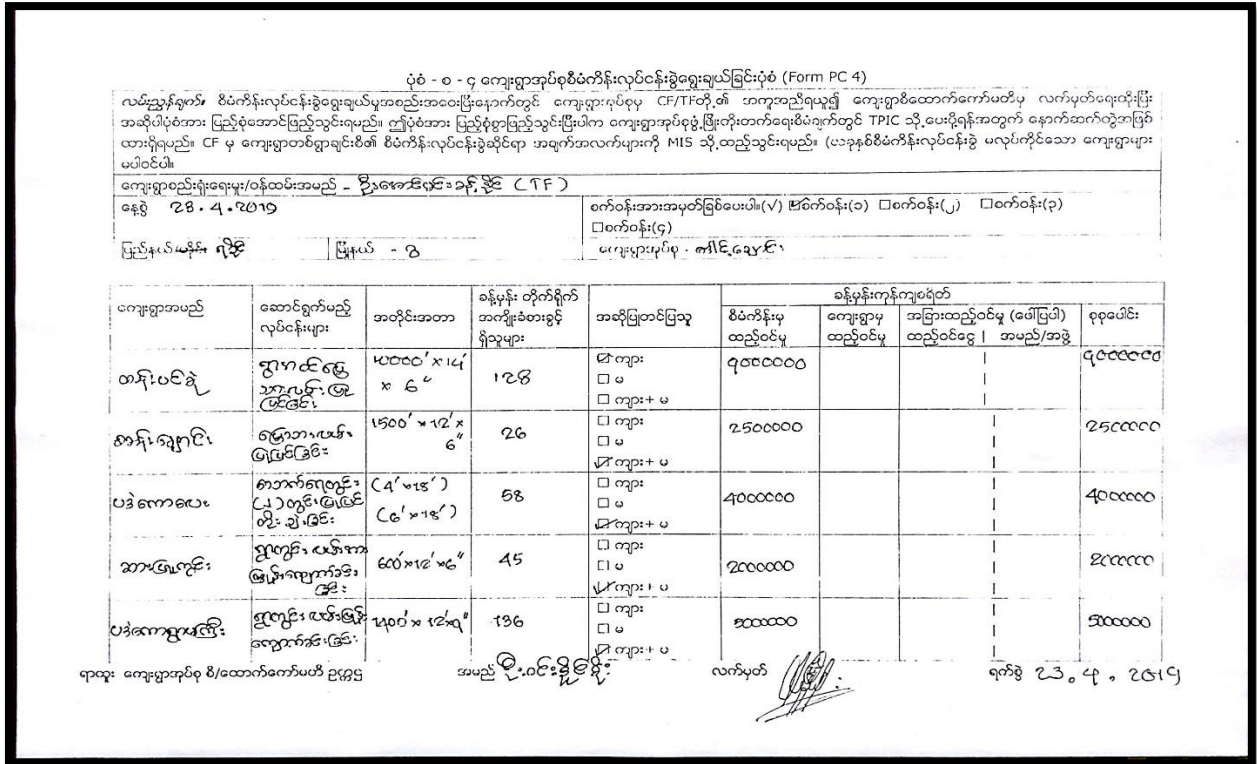 ပုံစံ - စ - ၄ ကျေးရွာအုပ်စုစီမံကိန်းလုပ်ငန်းခွဲရွေးချယ်ခြင်းပုံစံ (Form PC 4)
လမ်းညွှန်ချက်။ စီမံကိန်းလုပ်ငန်းခွဲရွေးချယ်မှုအစည်းအဝေးပြီးနောက်တွင် ကျေးရွာအုပ်စုမှ CF/TFတို့၏ အကူအညီရယူ၍ ကျေးရွာစီထောက်ကော်မတီမှ လက်မှတ်ရေးထိုးပြီး
အဆိုပါပုံစံအား ပြည့်စုံအောင်ဖြည့်သွင်းရမည်။ ဤပုံစံအား ပြည့်စုံစွာဖြည့်သွင်းပြီးပါက ကျေးရွာအုပ်စုဖွံ့ဖြိုးတိုးတက်ရေးစီမံချက်တွင် TPIC သို့ပေးပို့ရန်အတွက် နောက်ဆက်တွဲအဖြစ်
ထားရှိရမည်။ CF မှ ကျေးရွာတစ်ရွာချင်းစီ၏ စီမံကိန်းလုပ်ငန်းခွဲဆိုင်ရာ အချက်အလက်များကို MIS သို့ထည့်သွင်းရမည်။ (ယခုနှစ်စီမံကိန်းလုပ်ငန်းခွဲ မလုပ်ကိုင်သော ကျေးရွာများ
မပါဝင်ပါ။
ကျေးရွာစည်းရုံးရေးမှူး/ဝန်ထမ်းအမည် - (TF)
နေ့စွဲ 28.4.2019 စက်ဝန်းအားအမှတ်ခြစ်ပေးပါ။(√) ☑စက်ဝန်း(၁) ☐စက်ဝန်း(၂) ☐စက်ဝန်း(၃)
☐စက်ဝန်း(၄)
ပြည်နယ်/တိုင်း ရခိုင် မြို့နယ် - ဂွ ကျေးရွာအုပ်စု -
ကျေးရွာအမည် ဆောင်ရွက်မည့် လုပ်ငန်းများ အတိုင်းအတာ ခန့်မှန်း တိုက်ရိုက် အကျိုးခံစားခွင့် ရှိသူများ အဆိုပြုတင်ပြသူ ခန့်မှန်းကုန်ကျစရိတ်
စီမံကိန်းမှ ထည့်ဝင်မှု ကျေးရွာမှ ထည့်ဝင်မှု အခြားထည့်ဝင်မှု (ဖေါ်ပြပါ) စုစုပေါင်း
ထည့်ဝင်ငွေ | အမည်/အဖွဲ့
ထန်းပင်ခွဲ 128 ☑ ကျား ☐ မ ☐ ကျား+ မ ၅၀၀၀၀၀၀ ၅၀၀၀၀၀၀
1500' × 12' × 6" 26 ☐ ကျား ☐ မ ☑ ကျား+ မ 2500000 2500000
ပဒဲကောလေး (4' × 18') (6' × 18') 58 ☐ ကျား ☐ မ ☑ ကျား+ မ 4000000 4000000
ဆားပြကွင်း 600' × 12' × 6" 45 ☐ ကျား ☐ မ ☑ ကျား+ မ 2000000 2000000
ပဒဲကောရွာမကြီး 136 ☐ ကျား ☐ မ ☑ ကျား+ မ 5000000 5000000
ရာထူး ကျေးရွာအုပ်စု စီ/ထောက်ကော်မတီ ဥက္ကဌ အမည် လက်မှတ် ရက်စွဲ 23.4.2019